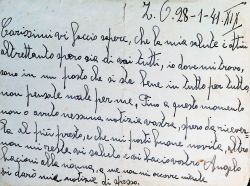 Z. O. 28-1-41 XIX
Carissimi vi faccio sapere, che la mia salute è ottima
altrettanto spero sia di voi tutti, io dove mi trovo,
sono in un posto che si sta bene in tutto per tutto,
non pensate male per me, Fino a questo momento
non o avuto nessuna notizia vostra, spero di riceverla
al più presto, e che mi porti buone novità, altro
non mi resta vi saluto e vi bacio vostro Angelo
Bacioni alla nonna, a me non mi occorre niente
vi darò mie notizie di spesso.